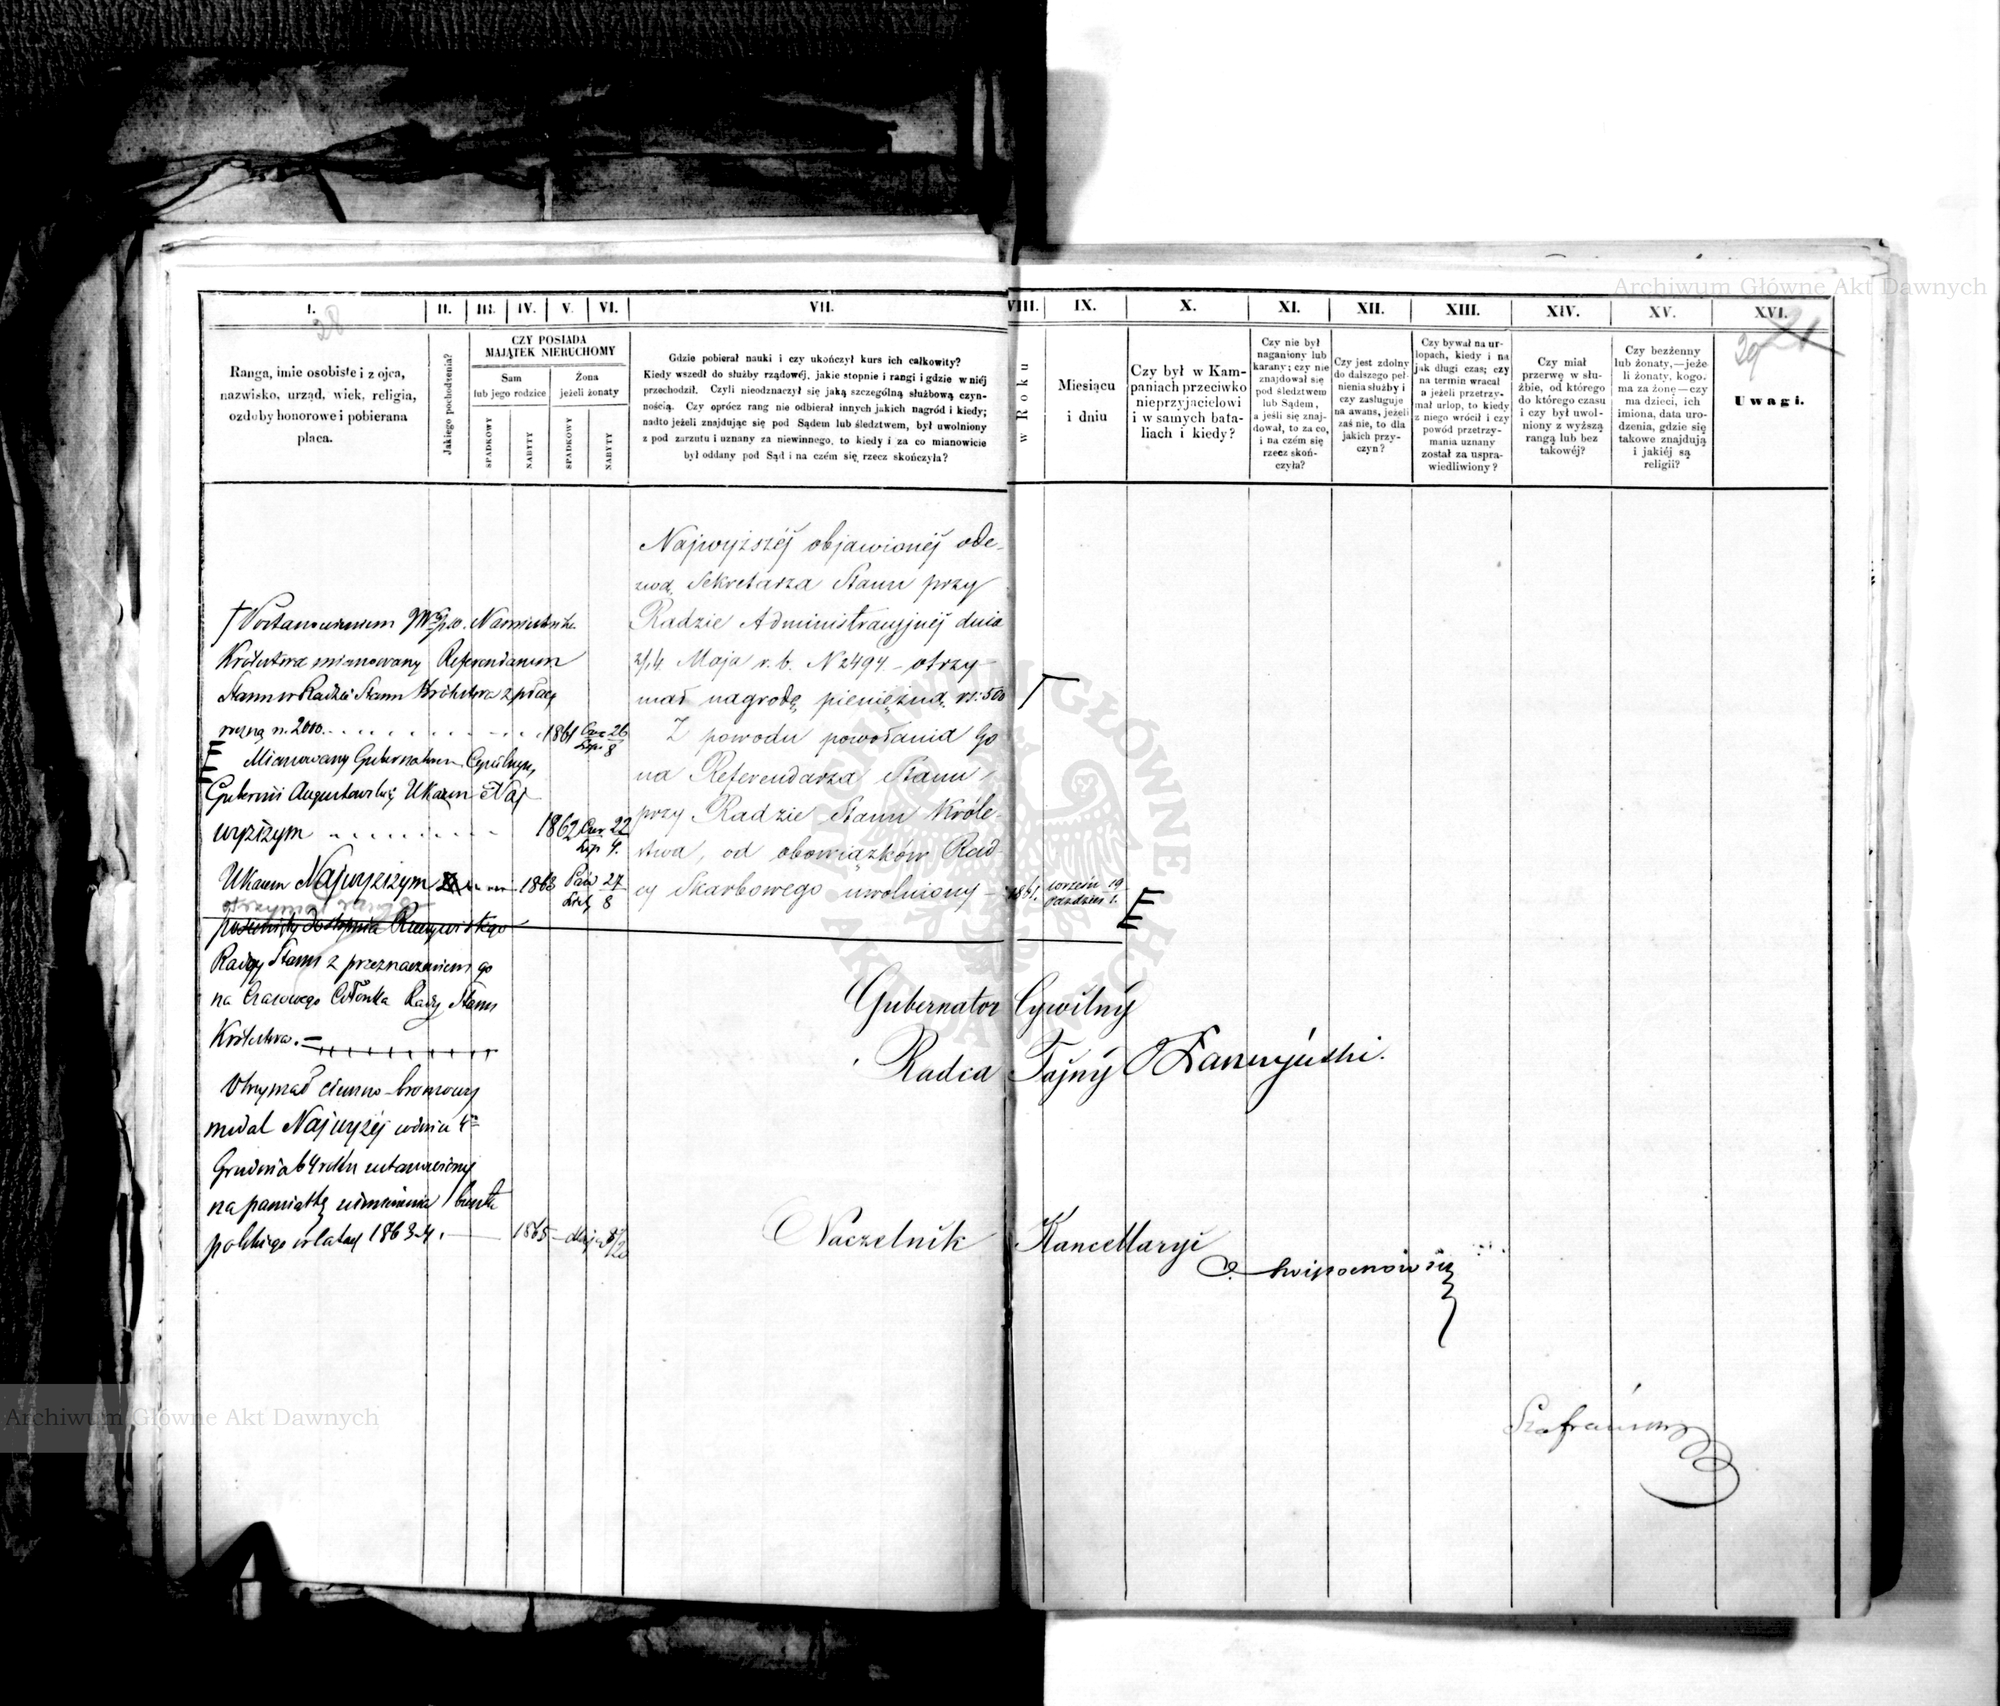 I.
II.
III.
IV.
V.
VI.
VII.
VIII.
IX.
X.
XI.
XII.
XIII.
XIV.
XV.
XVI.
28
29
Ranga, imie osobiste i z ojca,
nazwisko, urząd, wiek, religia,
ozdoby honorowe i pobierana
płaca.
Jakiego pochodzenia?
CZY POSIADA
MAJĄTEK NIERUCHOMY
Sam
lub jego rodzice
Żona
jeżeli żonaty
SPADKOWY
NABYTY
SPADKOWY
NABYTY
Gdzie pobierał nauki i czy ukończył kurs ich całkowity?
Kiedy wszedł do służby rządowéj, jakie stopnie i rangi i gdzie w niéj
przechodził. Czyli nieodznaczył się jaką szczególną służbową czyn-
nością. Czy oprócz rang nie odbierał innych jakich nagród i kiedy;
nadto jeżeli znajdując się pod Sądem lub śledztwem, był uwolniony
z pod zarzutu i uznany za niewinnego, to kiedy i za co mianowicie
był oddany pod Sąd i na czém się rzecz skończyła?
w Roku
Miesiącu
i dniu
Czy był w Kam-
paniach przeciwko
nieprzyjacielowi
i w samych bata-
liach i kiedy?
Czy nie był
naganiony lub
karany; czy nie
znajdował się
pod śledztwem
lub Sądem,
a jeśli się znaj-
dował, to za co,
i na czém się
rzecz skoń-
czyła?
Czy jest zdolny
do dalszego peł-
nienia służby i
czy zasługuje
na awans, jeżeli
zaś nie, to dla
jakich przy-
czyn?
Czy bywał na ur-
lopach, kiedy i na
jak długi czas; czy
na termin wracał
a jeżeli przetrzy-
mał urlop, to kiedy
z niego wrócił i czy
powód przetrzy-
mania uznany
został za uspra-
wiedliwiony?
Czy miał
przerwę w słu-
żbie, od którego
do którego czasu
i czy był uwol-
niony z wyższą
rangą lub bez
takowéj?
Czy bezżenny
lub żonaty,—jeże-
li żonaty, kogo
ma za żonę—czy
ma dzieci, ich
imiona, data uro-
dzenia, gdzie się
takowe znajdują
i jakiéj są
religii?
Uwagi.
Najwyższéj objawionéj ode-
zwą Sekretarza Stanu przy
Radzie Administracyjnéj dnia
2/14 Maja r. b. N 2494 – otrzy-
mał nagrodę pieniężną rs: 500
Z powodu powołania Go
na Referendarza Stanu
przy Radzie Stanu Króle-
stwa, od obowiązków Rad-
cy Skarbowego uwolniony – 1861. wrześń 19 Paździer 1.
† Postanowieniem Namiestnika
Królestwa mianowany Referendarzem
Stanu w Radzie Stanu Królestwa z płacą
roczną rs. 2000. 1861 Czer 26 Lip 8
Mianowany Gubernatorem Cywilnym
Gubernii Augustowskiéj Ukazem Naj
wyższym 1862 Czer 22 Lip 4.
Ukazem Najwyższym 1863 Paźd 27 List 8
otrzymał rangę
posunięty do stopnia Rzeczywistego
Radcy Stanu z przeznaczeniem go
na Czasowego Członka Rady Stanu
Królestwa.
Otrzymał ciemno-bronzowy
medal Najwyżéj w dniu 1
Grudnia 64 roku ustanowiony
na pamiątkę uśmierzenia buntu
polskiego w latach 1863-4. 1865 – Maja 8/20
Gubernator Cywilny
Radca Tajny Łaszczyński.
Naczelnik Kancellaryi
Szafrański
Archiwum Główne Akt Dawnych
Archiwum Główne Akt Dawnych
ARCHIWUM GŁÓWNE AKT DAWNYCH